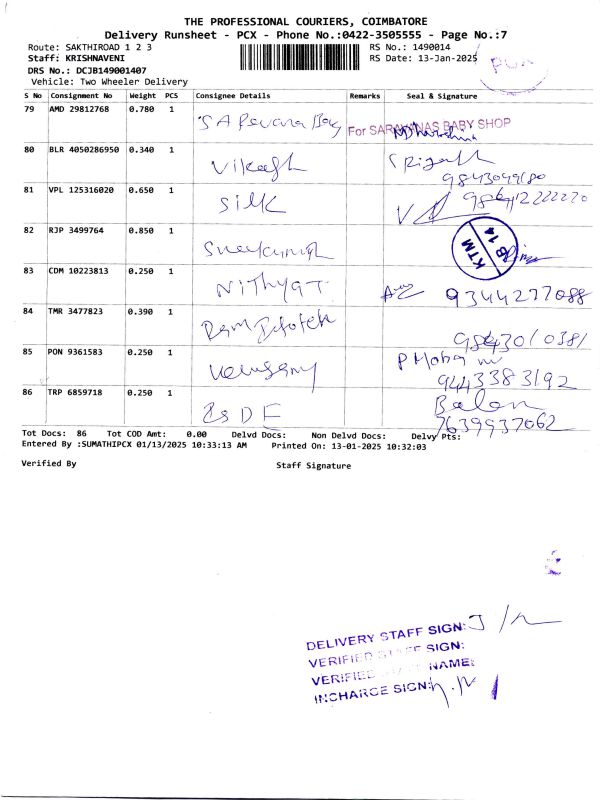 THE PROFESSIONAL COURIERS, COIMBATORE
Delivery Runsheet - PCX - Phone No.:0422-3505555 - Page No.:7
Route: SAKTHIROAD 1 2 3 RS No.: 1490014
Staff: KRISHNAVENI RS Date: 13-Jan-2025
DRS No.: DCJB149001407
Vehicle: Two Wheeler Delivery
S No Consignment No Weight PCS Consignee Details Remarks Seal & Signature
79 AMD 29812768 0.780 1 For SARAVANAS BABY SHOP
80 BLR 4050286950 0.340 1 Vikash
9843099180
81 VPL 125316020 0.650 1 Silk
82 RJP 3499764 0.850 1 KTM
83 CDM 10223813 0.250 1 Nithya 9344277088
84 TMR 3477823 0.390 1
9843010381
85 PON 9361583 0.250 1 P Mohan
9443383192
86 TRP 6859718 0.250 1 Balan
7639937062
Tot Docs: 86 Tot COD Amt: 0.00 Delvd Docs: Non Delvd Docs: Delvy Pts:
Entered By :SUMATHIPCX 01/13/2025 10:33:13 AM Printed On: 13-01-2025 10:32:03
Verified By Staff Signature
DELIVERY STAFF SIGN:
VERIFIED STAFF SIGN:
VERIFIED STAFF NAME:
INCHARGE SIGN: